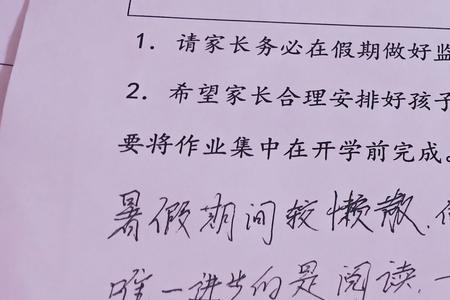 1. 请家长务必在假期做好监
2. 希望家长合理安排好孩子
要将作业集中在开学前完成。
暑假期间较懒散,
唯一进步的是阅读,一